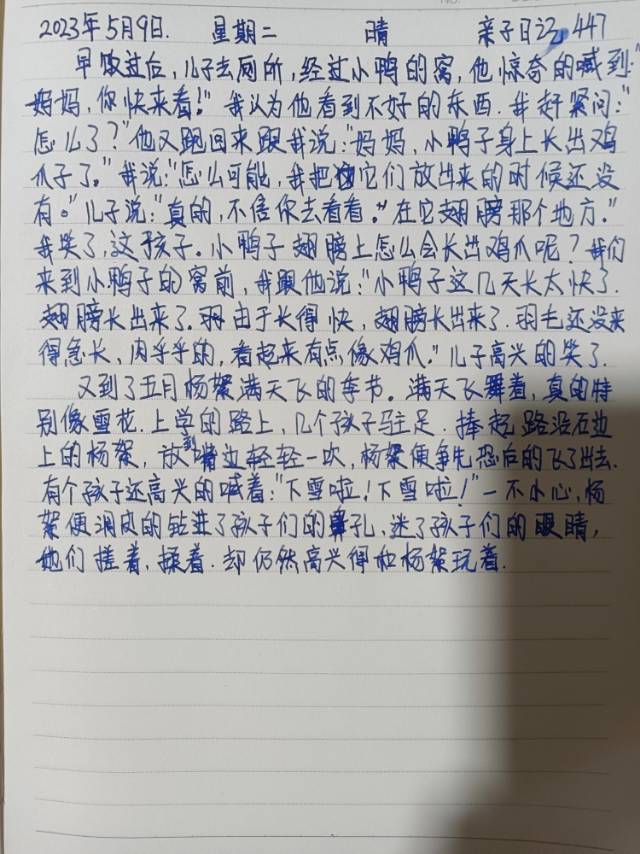 2023年5月9日. 星期二 晴 亲子日记 447
早饭过后,儿子去厕所,经过小鸭的窝,他惊奇的喊到:"
妈妈,你快来看!"我认为他看到不好的东西.我赶紧问:"
怎么了?"他又跑回来跟我说:"妈妈,小鸭子身上长出鸡
爪子了。"我说:"怎么可能,我把它们放出来的时候还没
有。"儿子说:"真的,不信你去看看。"在它翅膀那个地方."
我笑了,这孩子.小鸭子翅膀上怎么会长出鸡爪呢?我们
来到小鸭子的窝前,我跟他说:"小鸭子这几天长太快了.
翅膀长出来了.由于长得快,翅膀长出来了.羽毛还没来
得急长,肉乎乎的,看起来有点像鸡爪."儿子高兴的笑了.
又到了五月杨絮满天飞的季节.满天飞舞着,真的特
别像雪花.上学的路上,几个孩子驻足.捧起路沿石边
上的杨絮,放到嘴边轻轻一吹,杨絮便争先恐后的飞了出去.
有个孩子还高兴的喊着:"下雪啦!下雪啦!"一不小心,杨
絮便调皮的钻进了孩子们的鼻孔,迷了孩子们的眼睛,
他们搓着,揉着.却仍然高兴得和杨絮玩着.